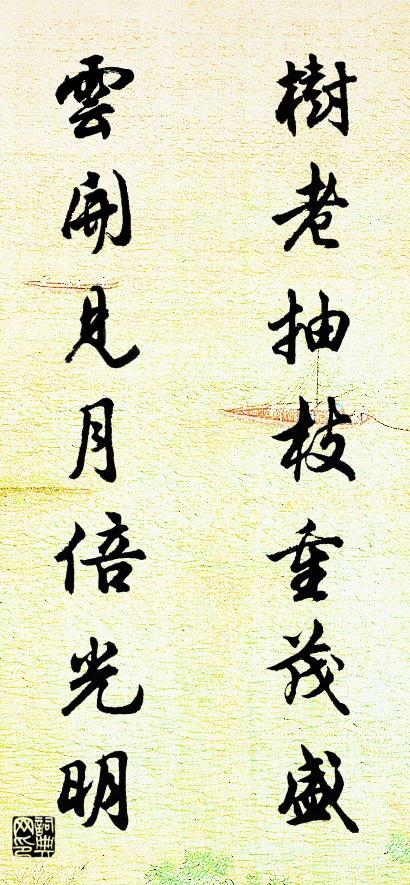 樹老抽枝重茂盛
雲開見月倍光明
詞典网印